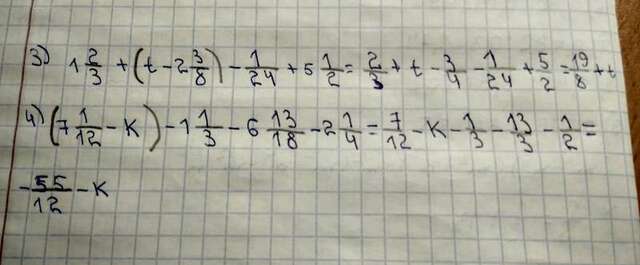 3) 1 2/3 + (t - 2 3/8) - 1/24 + 5 1/2 = 2/3 + t - 3/4 - 1/24 + 5/2 = 19/8 + t
4) (7 1/12 - K) - 1 1/3 - 6 13/18 - 2 1/4 = 7/12 - K - 1/3 - 13/3 - 1/2 =
- 55/12 - K